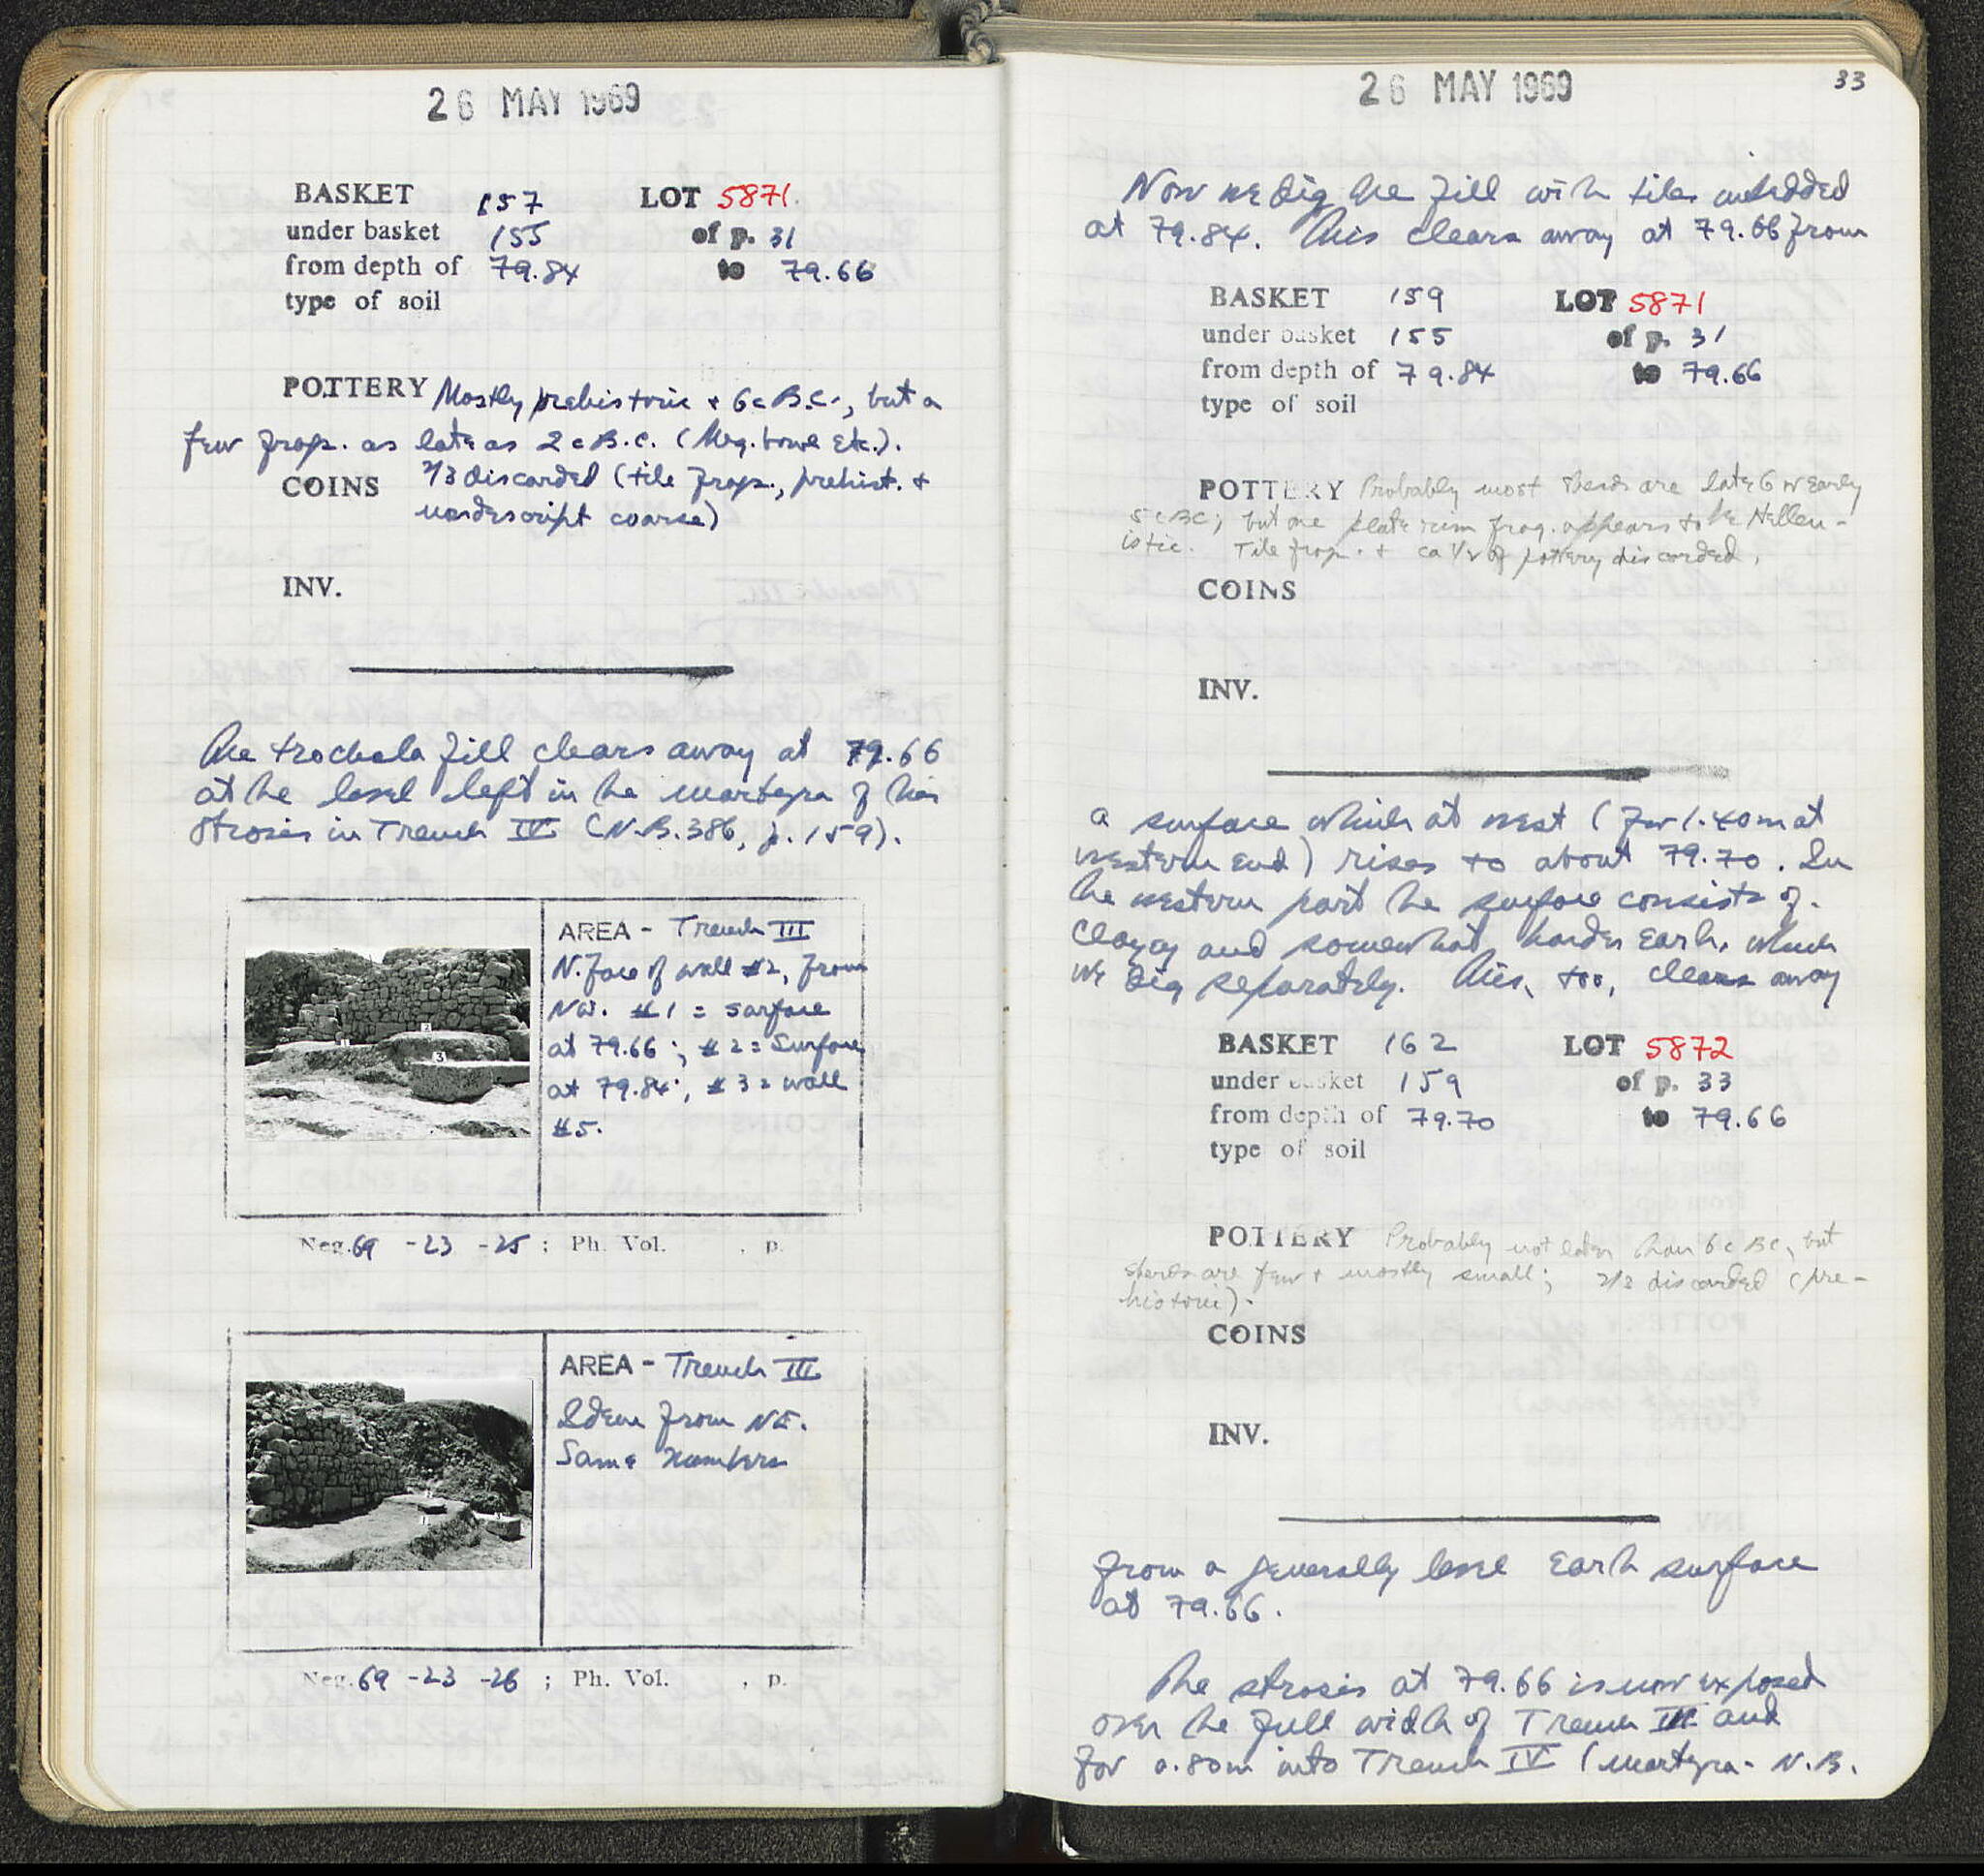 26 MAY 1969
BASKET 157 LOT 5871
under basket 155 of p. 31
from depth of 79.84 to 79.66
type of soil
POTTERY Mostly prehistoric + 6c B.C., but a
few frags. as late as 2c B.C. (Meg. bowl etc.).
COINS 2/3 discarded (tile frags., prehist. +
nondescript coarse)
INV.
The trochala fill clears away at 79.66
at the level left in the martyra of this
strosis in Trench IV (N.B. 386, p. 159).
AREA - Trench III
N. face of wall #2, from
NW. #1 = surface
at 79.66; #2 = surface
at 79.84; #3 = wall
#5.
Neg. 69 -23 -25 ; Ph. Vol. , p.
AREA - Trench III
Idem from NE.
Same numbers
Neg. 69 -23 -26 ; Ph. Vol. , p.
26 MAY 1969 33
Now we dig the fill with tiles imbedded
at 79.84. This clears away at 79.66 from
BASKET 159 LOT 5871
under basket 155 of p. 31
from depth of 79.84 to 79.66
type of soil
POTTERY Probably most sherds are late 6 or early
5 c BC; but one plate rim frag. appears to be Hellen-
istic. Tile frags. + ca 1/2 of pottery discarded.
COINS
INV.
a surface which at west (for 1.40m at
western end) rises to about 79.70. In
the western part the surface consists of
clayey and somewhat harder earth, which
we dig separately. This, too, clears away
BASKET 162 LOT 5872
under basket 159 of p. 33
from depth of 79.70 to 79.66
type of soil
POTTERY Probably not later than 6 c BC, but
sherds are few + mostly small; 2/3 discarded (pre-
historic).
COINS
INV.
from a generally level earth surface
at 79.66.
The strosis at 79.66 is now exposed
over the full width of Trench III and
for 0.80m into Trench IV (martyra - N.B.